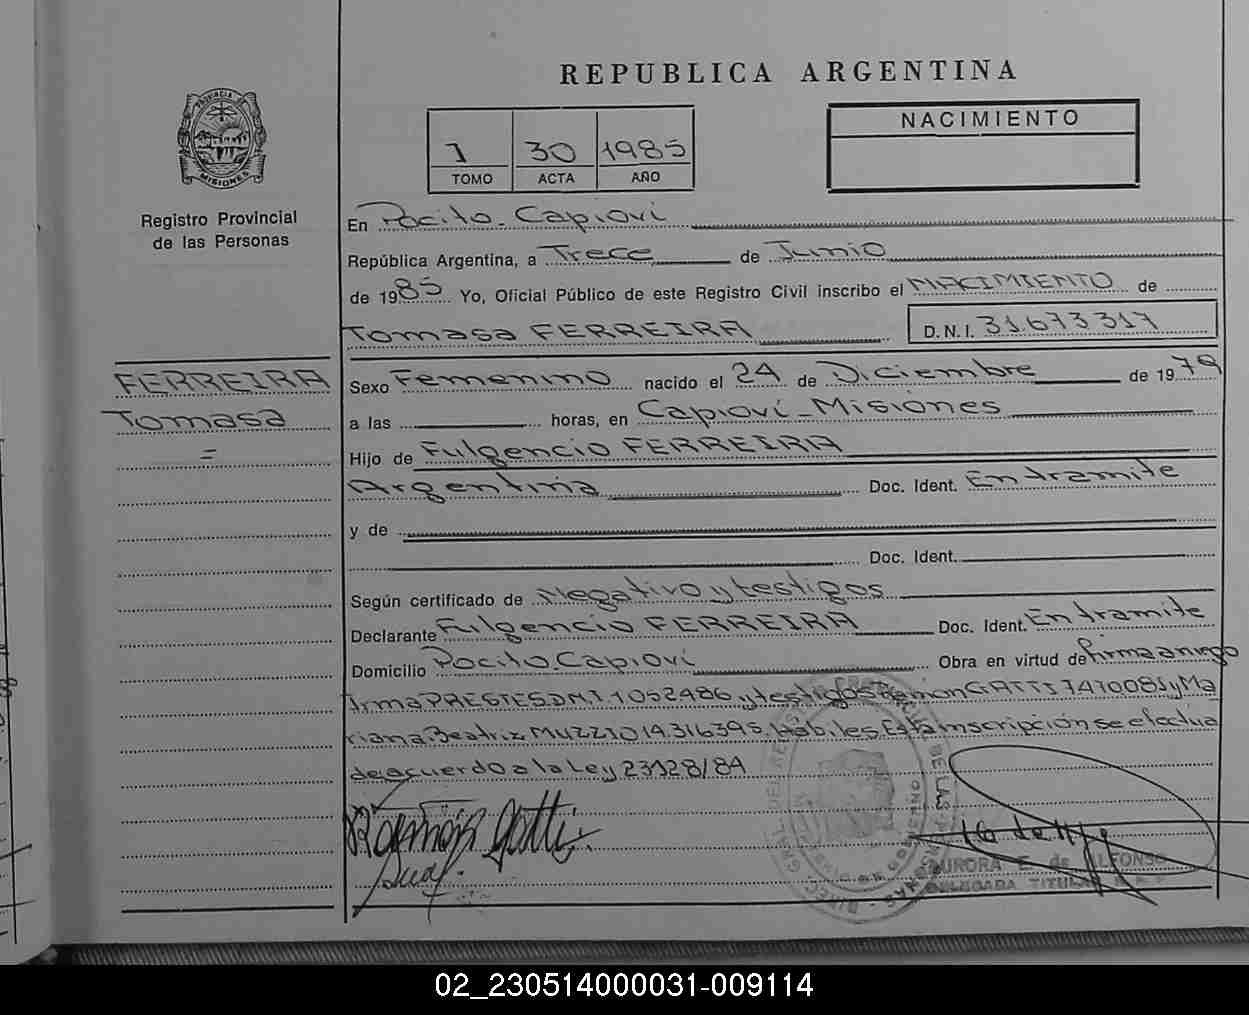 REPUBLICA ARGENTINA
PROVINCIA DE MISIONES
Registro Provincial
de las Personas
1 30 1985
TOMO ACTA AÑO
NACIMIENTO
En Pocito - Capioví
República Argentina, a Trece de Junio
de 1985 Yo, Oficial Público de este Registro Civil inscribo el NACIMIENTO de
Tomasa FERREIRA D.N.I. 31.673.317
FERREIRA
Tomasa
=
Sexo Femenino nacido el 24 de Diciembre de 1979
a las horas, en Capioví - Misiones
Hijo de Fulgencio FERREIRA
Argentina Doc. Ident. En tramite
y de
Doc. Ident.
Según certificado de Negativo y testigos
Declarante Fulgencio FERREIRA Doc. Ident. En tramite
Domicilio Pocito. Capioví Obra en virtud de firma a ruego
Irma PRESTES D.N.I. 1.052.486 y testigos Ramon GATTI 7.470.085 y Ma
riana Beatriz MUZZIO 14.316.395. Habiles. Esta inscripción se efectúa
de acuerdo a la Ley 23128/84
Ramón Gatti
AURORA E. de ALFONSO
DELEGADA TITULAR
02_230514000031-009114